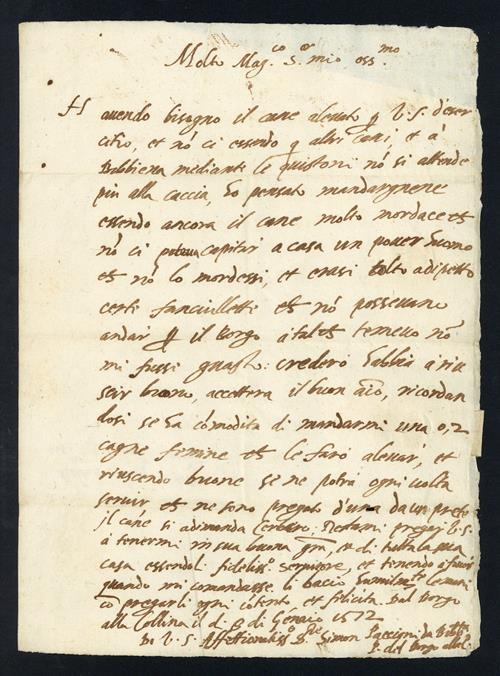 Molto Mag.co S.or mio oss.mo
Havendo bisogno il cane alevato p V.S. d'eser
citio, et nō ci essendo q altri cani, et a
Bibbiena mediante le quistioni nō si attende
piu alla caccia, ho pensato mandargnene
essendo ancora il cane molto mordace et
nō ci capitar a casa un pover huomo
et nō lo mordessi, et erasi tolto a dispetto
certi fanciulletti et nō possevano
andar p il borgo a tal et temevo nō
mi fussi guasto: crederò habbia a riu
scir buono, accettera il buon aīo, ricordan
dosi se ha cōmodita di mandarmi una o, 2
cagne femine et le farò alevar, et
riuscendo buone se ne potrà ogni volta
servir et ne sono pregato d'una da un prete
il cane si adimanda restami pregar V.S.
a tenermi in sua buona grā, et di tutta la sua
casa essendoli fideliss.o servitore, et tenendo a favor
quando mi comandasse. li bacio humilmte le mani
cō pregarli ogni cōtento, et felicita. Dal borgo
alla Collina il d 8 di Genaio 1572
Di V.S. Affettionatiss.o Simon Paccioni da Bibb.a
P. del borgo alla C.